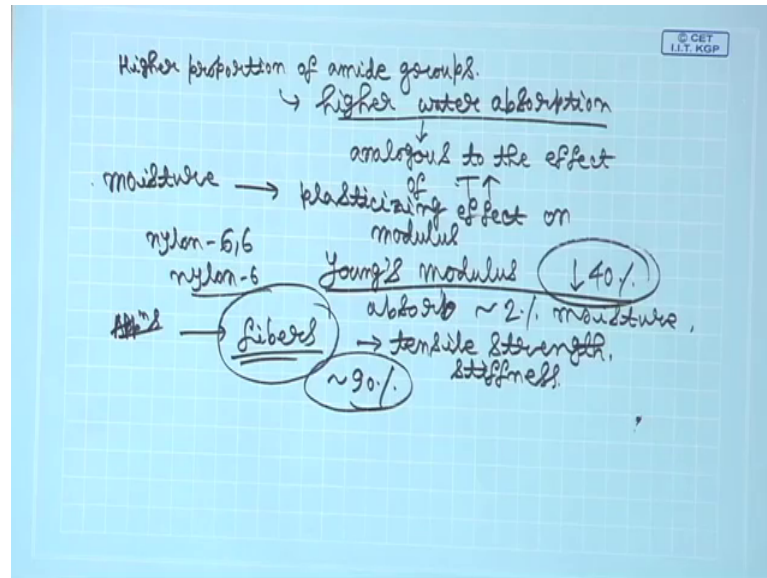 © CET
I.I.T. KGP
Higher proportion of amide groups.
↳ higher water absorption
↓
analogous to the effect
of : T ↑
moisture → plasticizing effect on
modulus
nylon-6,6
nylon-6
Young's modulus ↓ 40%.
absorb ~ 2% moisture,
Appns → fibers → tensile strength,
stiffness.
~90%